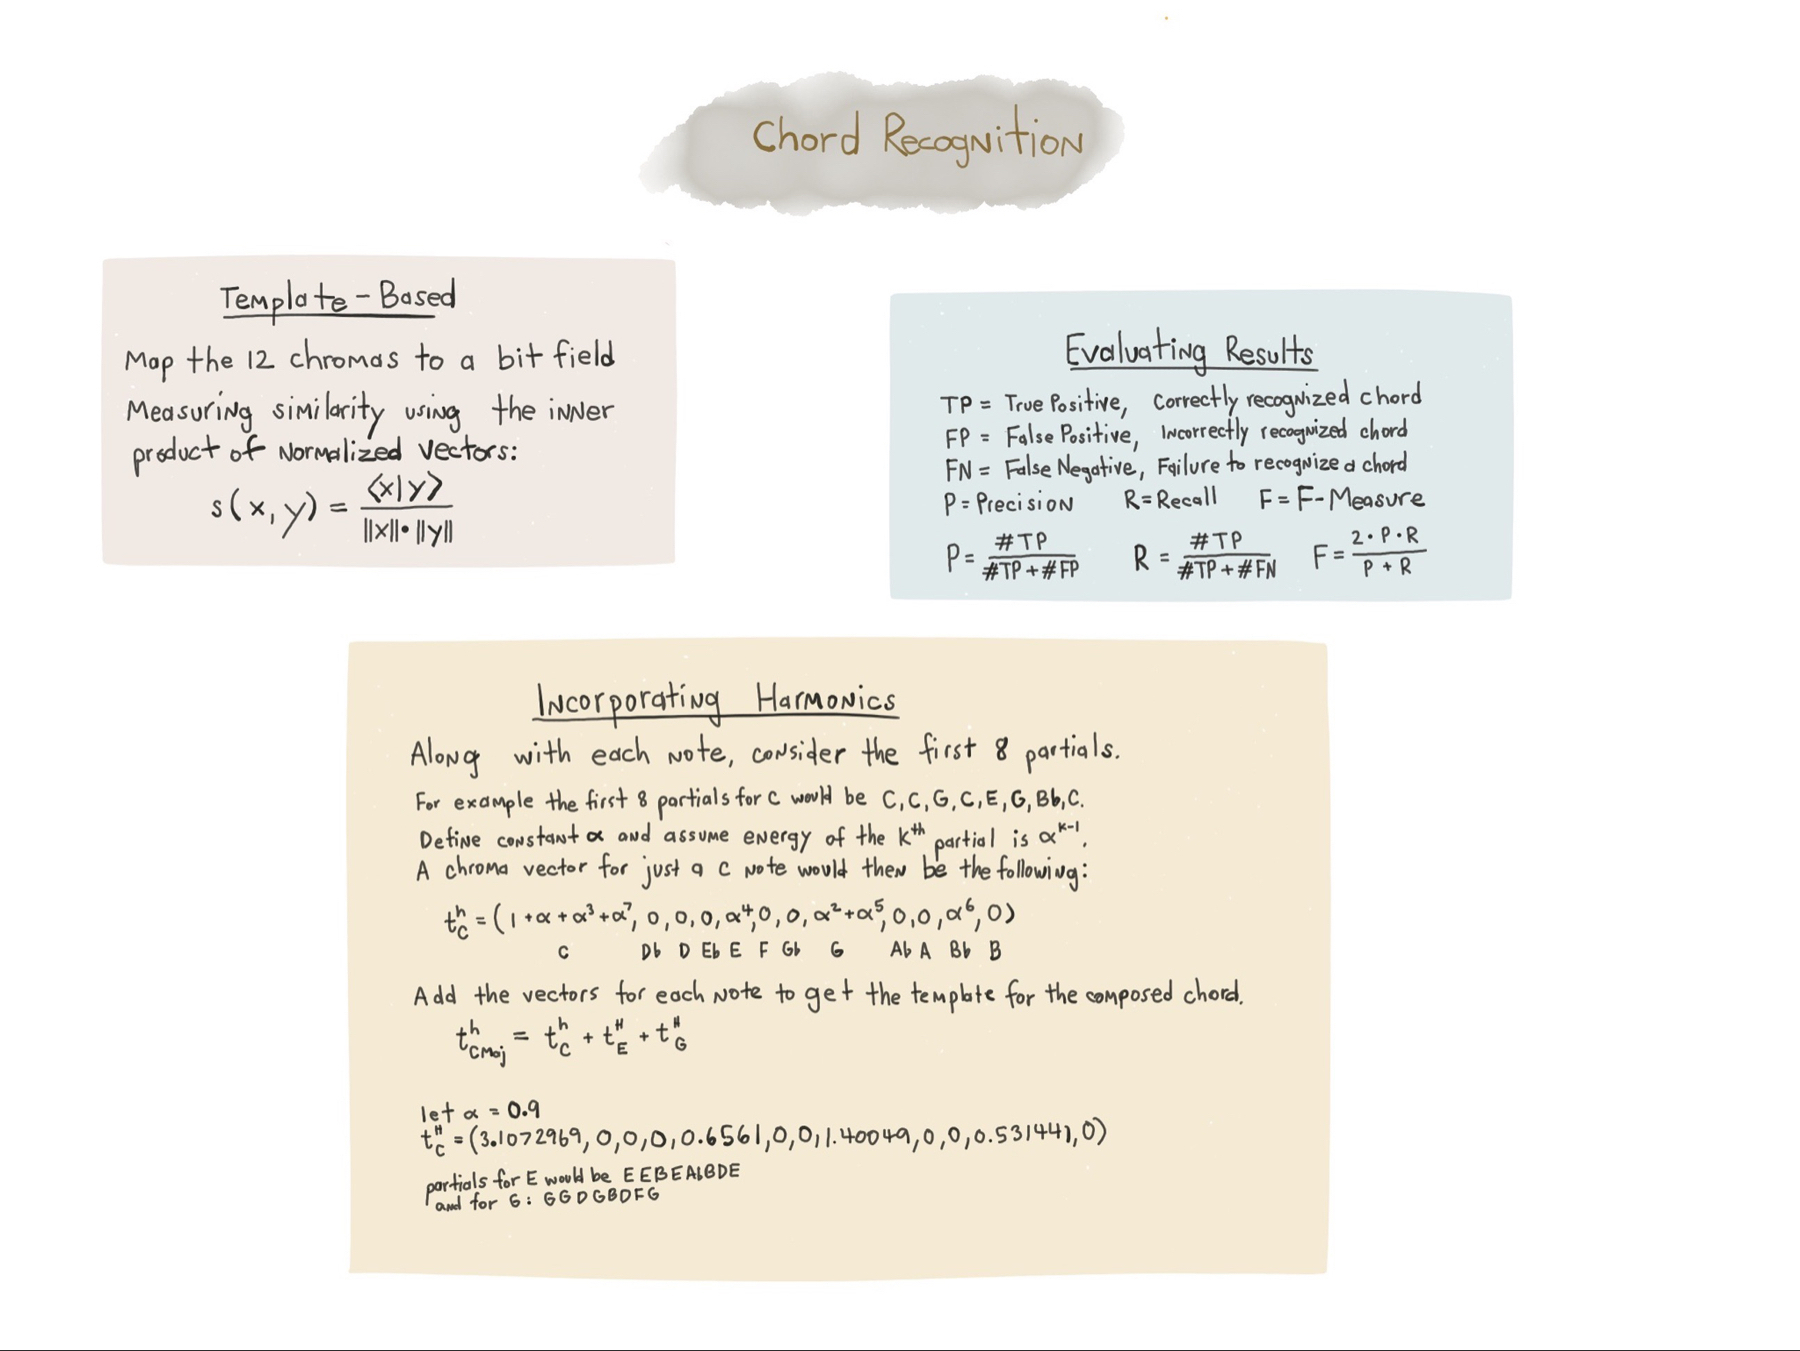 Chord Recognition
Template-Based
Map the 12 chromas to a bit field
Measuring similarity using the inner
product of normalized vectors:
s(x,y) = ⟨x|y⟩ / ||x||•||y||
Evaluating Results
TP = True Positive, Correctly recognized chord
FP = False Positive, Incorrectly recognized chord
FN = False Negative, Failure to recognize a chord
P=Precision R=Recall F=F-Measure
P= #TP / #TP+#FP R = #TP / #TP+#FN F= 2•P•R / P+R
Incorporating Harmonics
Along with each note, consider the first 8 partials.
For example the first 8 partials for C would be C,C,G,C,E,G,Bb,C.
Define constant α and assume energy of the kᵗʰ partial is α^k-1.
A chroma vector for just a C note would then be the following:
t^h_C = (1+α+α³+α⁷, 0,0,0,α⁴,0,0,α²+α⁵,0,0,α⁶,0)
C Db D Eb E F Gb G Ab A Bb B
Add the vectors for each note to get the template for the composed chord.
t^h_CMaj = t^h_C + t^H_E + t^H_G
let α = 0.9
t^H_C = (3.1072969,0,0,0,0.6561,0,0,1.40049,0,0,0.531441,0)
partials for E would be EEBEAbBDE
and for G: GGDGBDFG